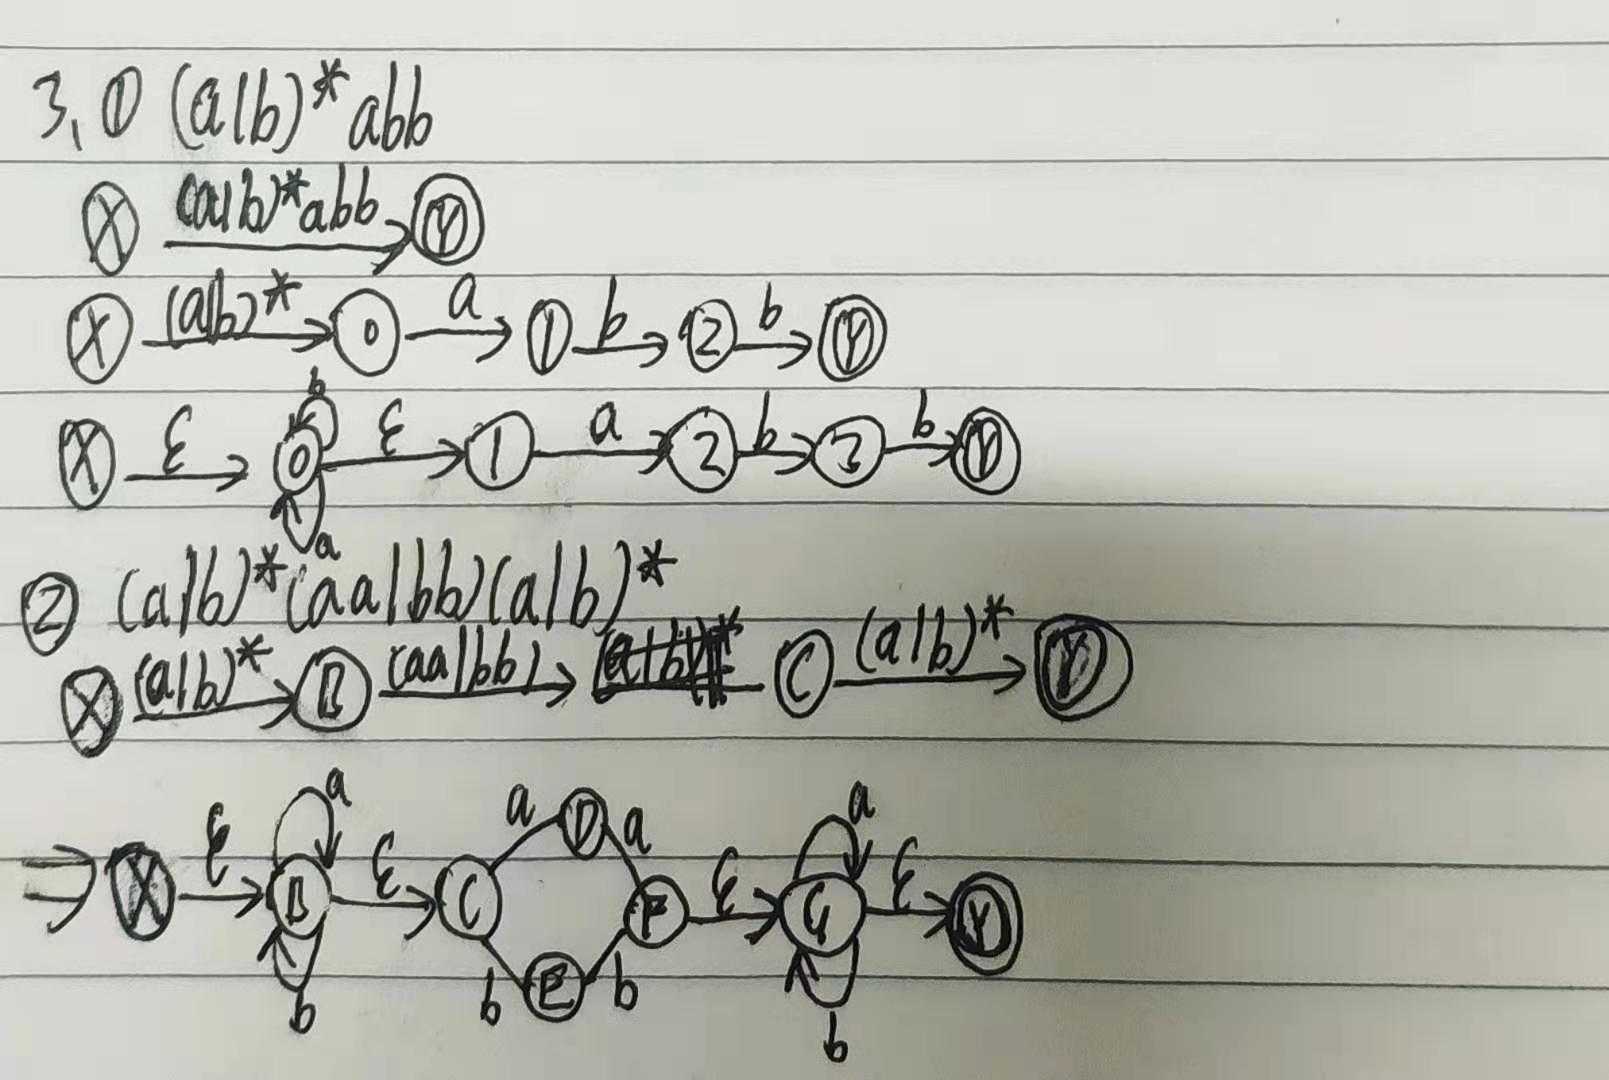 3, ① (a|b)*abb
X (a|b)*abb Y
X (a|b)* 0 a 1 b 2 b Y
b
X ε 0 ε 1 a 2 b 3 b Y
a
② (a|b)*(aa|bb)(a|b)*
X (a|b)* B (aa|bb) C (a|b)* Y
a a D a a
⇒ X ε B ε C F ε G ε Y
b b E b b